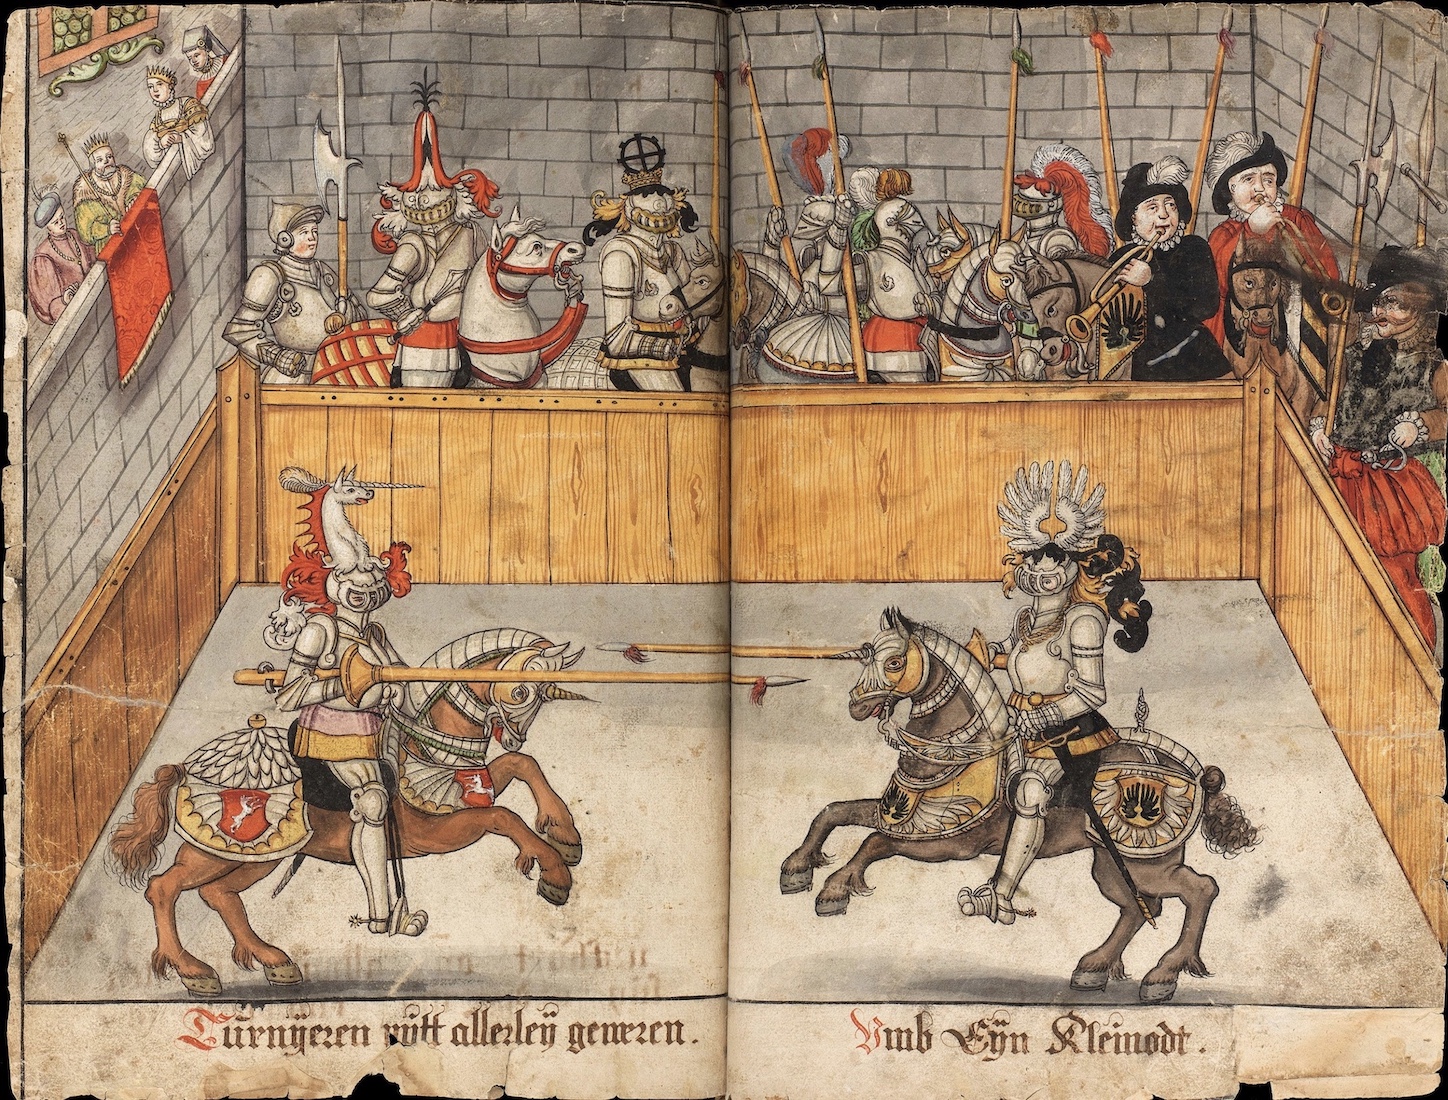 Türnÿeren mÿtt allerleÿ geweren.
Vmb Eÿn Kleinodt.